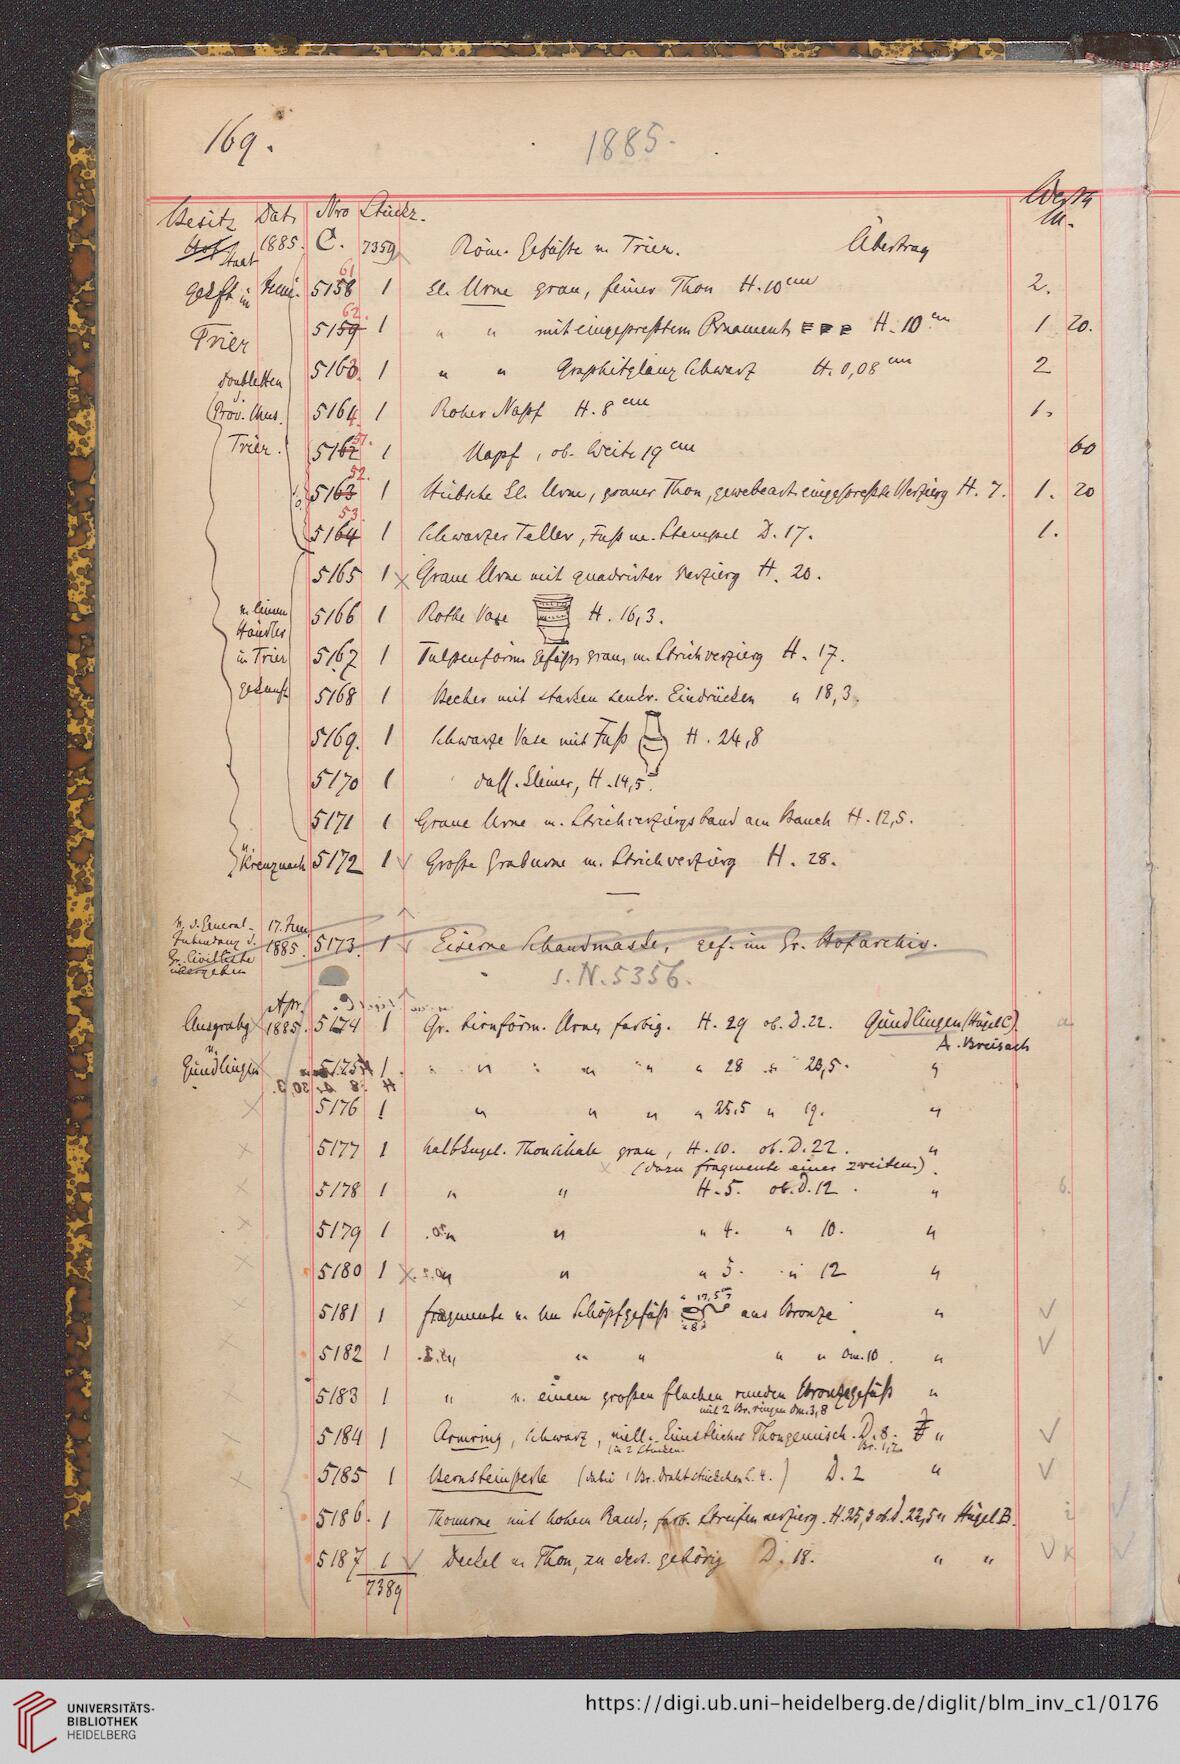 169.
1885.
Besitz Dat. Nro Stückz. Werth M.
Hof Staat 1885. C. 7359 Röm. Gefäße v. Trier. Übertrag
gekft in Juni. 5158 61 1 kl. Urne grau, feiner Thon H. 10 cm 2.
Trier 5159 62. 1 " " mit eingepreßtem Ornament H. 10 cm 1 20.
Doubletten 5163. 1 " " Graphitglanz schwarz H. 0,08 cm 2
d. Prov. Mus. 5164. 1 Roher Napf H. 8 cm 1.
Trier. 5162 51. 1 Napf, ob. Weite 19 cm 60
5163 52. 1 Hübsche kl. Urne, grauer Thon, gewebeart. eingepreßte Verzierg H. 7. 1. 20
5164 53. 1 Schwarzer Teller, Fuß m. Stempel D. 17. 1.
5165 1 Graue Urne mit quadrirter Verzierg H. 20.
v. einem 5166 1 Rothe Vase H. 16,3.
Händler
in Trier 5167 1 Tulpenförm. Gefäß, grau, m. Strichverzierg H. 17.
gekauft 5168 1 Becher mit starken senkr. Eindrücken " 18,3.
5169. 1 Schwarze Vase mit Fuß H. 24,8
5170 1 dass. kleiner, H. 14,5.
5171 1 Graue Urne m. Strichverziergsband am Bauch H. 12,5.
Kreuznach 5172 1 Große Graburne m. Strichverzierg H. 28.
v. d. General- 17. Juni
Intendanz d. 1885. 5173. 1 Eiserne Schandmaske, gef. im Gr. Hofarchiv.
Gr. Civilliste
übergeben
s. N. 5356.
Ausgrabg Apr. 1885. 5174 1 Gr. birnförm. Urne, farbig. H. 29 ob. D. 22. Gündlingen (Hügel C).
A. Breisach
v. Gündlingen 5175 1 " " " " " " 28 " " 23,5. "
5176 1 " " " " 25,5 " 19. "
5177 1 halbkugel. Thonschale grau, H. 10. ob. D. 22. "
(dazu Fragmente einer zweiten).
5178 1 " " H. 5. ob. D. 12. " 6.
5179 1 " " " 4. " 10. "
5180 1 " " " 5. " 12 "
5181 1 Fragmente v. Schöpfgefäß " 17,5 " 8 aus Bronze "
5182 1 " " " " " Dm. 10. "
5183 1 " v. einem großen flachen runden Bronzegefäß "
mit 2 Br. ringen Dm. 3,8
5184 1 Armring, schwarz, künstliches Thongemisch. D. 8. "
in 2 Stücken. Br. 1,2
5185 1 Bernsteinperle (dabei 1 Br. Drahtstückchen L. 4.) D. 2 "
5186. 1 Thonurne mit hohem Rand, farb. Streifen verzierg. H. 25,3 ob. D. 22,5 " Hügel B.
5187 1 Deckel v. Thon, zu ders. gehörig D. 18. " "
7389
UNIVERSITÄTS-
BIBLIOTHEK
HEIDELBERG
https://digi.ub.uni-heidelberg.de/diglit/blm_inv_c1/0176